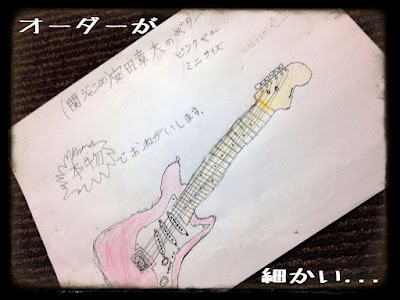 オーダーが
(関ジャニの)安田章大のギター
ピンクギター
ミニサイズ
本物
でおねがいします。
細かい...